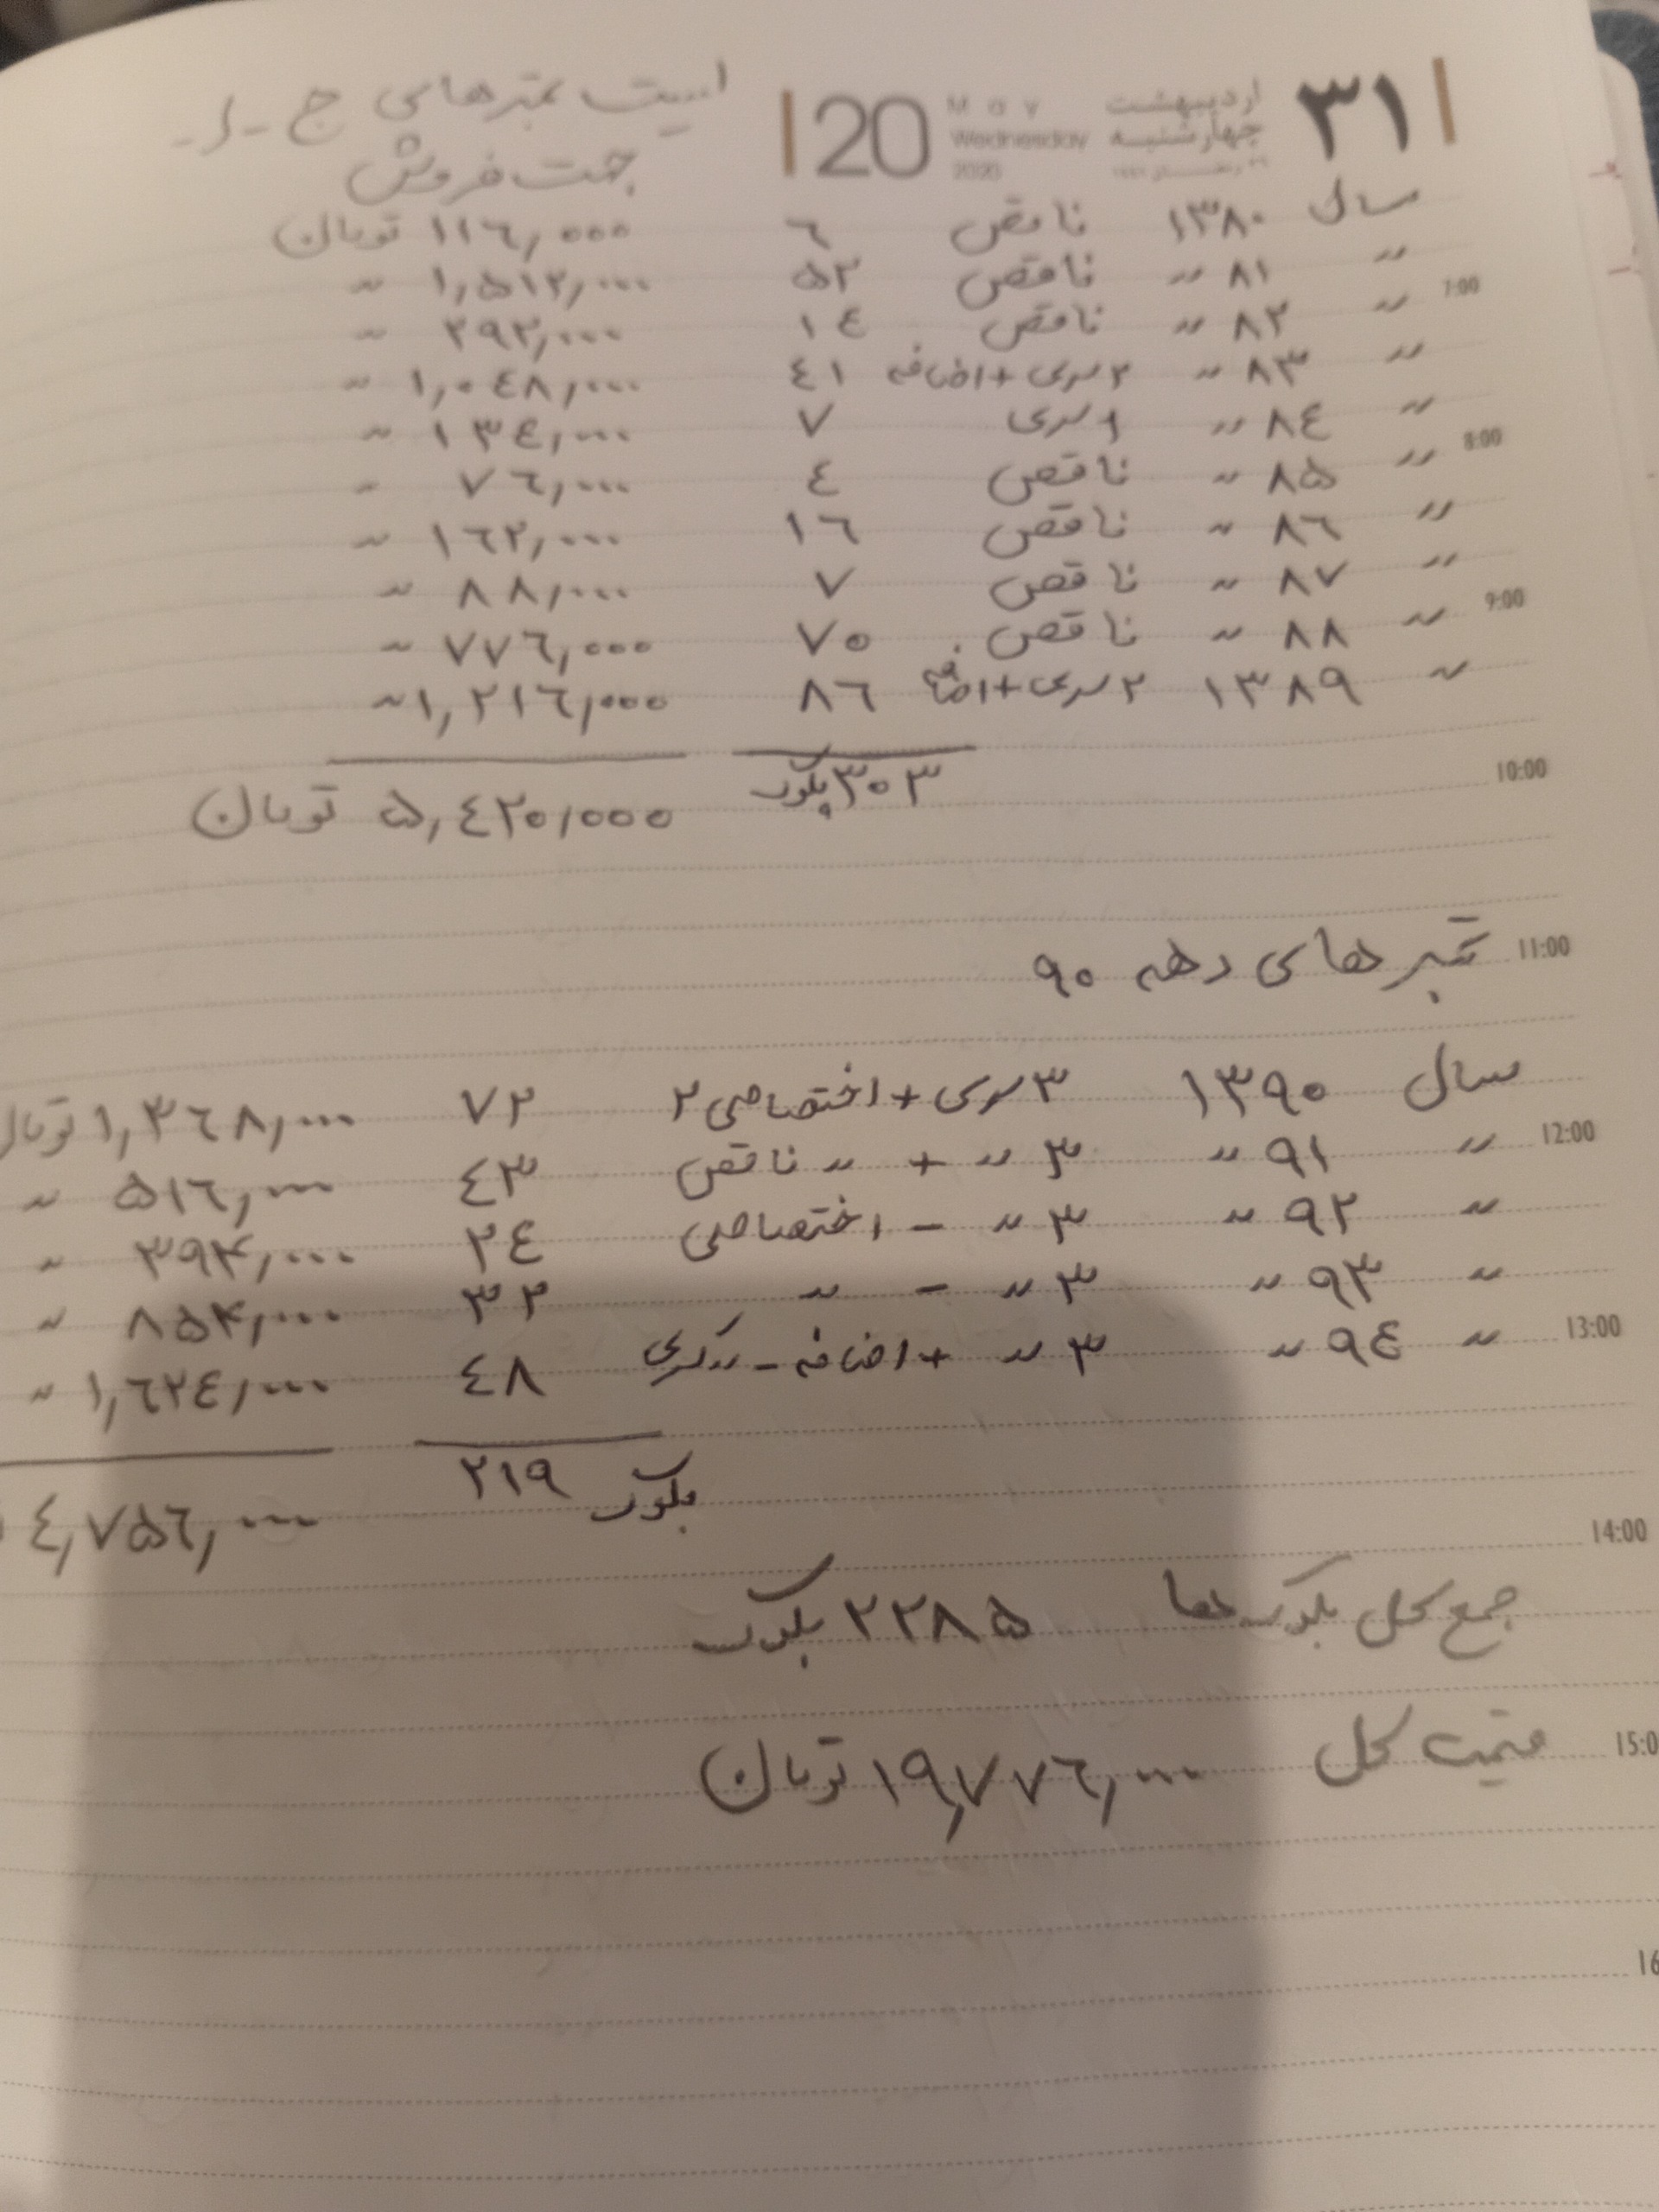 ۳۱ اردیبهشت چهارشنبه May Wednesday 2020 20
لیست تمبرهای ج - ا -
جهت فروش
سال ۱۳۸۰ ناقص ٦ ۱۱٦,۰۰۰ تومان
〃 ۸۱ 〃 ناقص ۵۲ ۱,۵۱۲,۰۰۰ 〃
7:00
〃 ۸۲ 〃 ناقص ۱٤ ۲۹۲,۰۰۰ 〃
〃 ۸۳ 〃 ۲ سری + اضافه ٤۱ ۱,۰٤۸,۰۰۰ 〃
〃 ۸٤ 〃 ۱ سری ۷ ۱۳٤,۰۰۰ 〃
8:00
〃 ۸۵ 〃 ناقص ٤ ۷٦,۰۰۰ 〃
〃 ۸٦ 〃 ناقص ۱٦ ۱٦۲,۰۰۰ 〃
〃 ۸۷ 〃 ناقص ۷ ۸۸,۰۰۰ 〃
9:00
〃 ۸۸ 〃 ناقص ۷۰ ۷۷٦,۰۰۰ 〃
〃 ۱۳۸۹ ۲ سری + اضافه ۸٦ ۱,۲۱٦,۰۰۰ 〃
10:00
۳۰۳ بلوک ۵,٤۲۰,۰۰۰ تومان
11:00
تمبرهای دهه ۹۰
سال ۱۳۹۰ ۳ سری + اختصاصی ۲ ۷۲ ۱,۳٦۸,۰۰۰ تومان
12:00
〃 ۹۱ 〃 ۳ 〃 + 〃 ناقص ٤۳ ۵۱٦,۰۰۰ 〃
〃 ۹۲ 〃 ۳ 〃 - اختصاصی ۲٤ ۳۹۴,۰۰۰ 〃
〃 ۹۳ 〃 ۳ 〃 - 〃 ۳۲ ۸۵۴,۰۰۰ 〃
13:00
〃 ۹٤ 〃 ۳ 〃 + اضافه - ٤۸ ۱,٦۲٤,۰۰۰ 〃
بلوک ۲۱۹ ٤,۷۵٦,۰۰۰
14:00
جمع کل بلوک ها ۲۲۸۵ بلوک
15:0
قیمت کل ۱۹,۷۷٦,۰۰۰ تومان
16